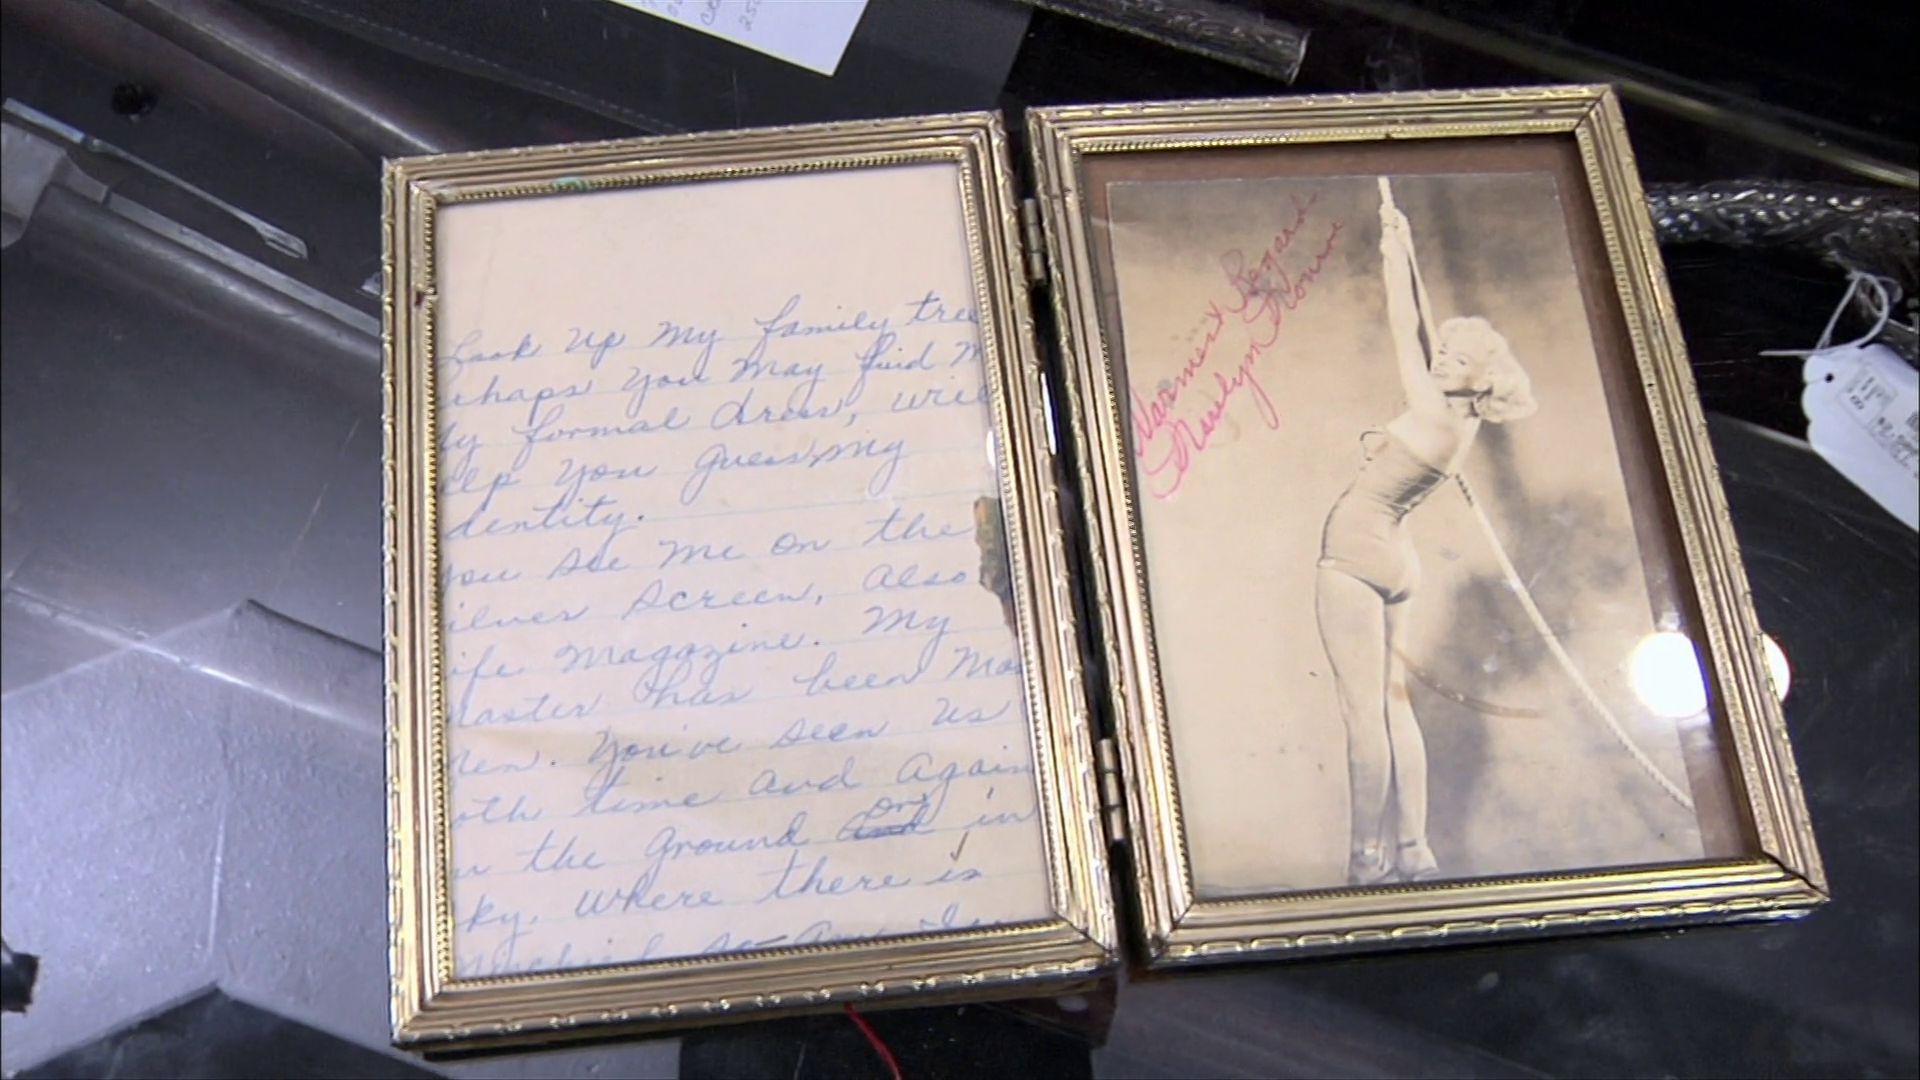 Look Up My family tree
rhaps You May find M
ly formal dress, will
elp You guess my
dentity.
You see Me on the
ilver Screen, Also
ife Magazine. My
master has been Mos
hen. You've seen Us
oth time and Again
n the Ground or in
ky. Where there is
Warmest Regard
Marilyn Monroe